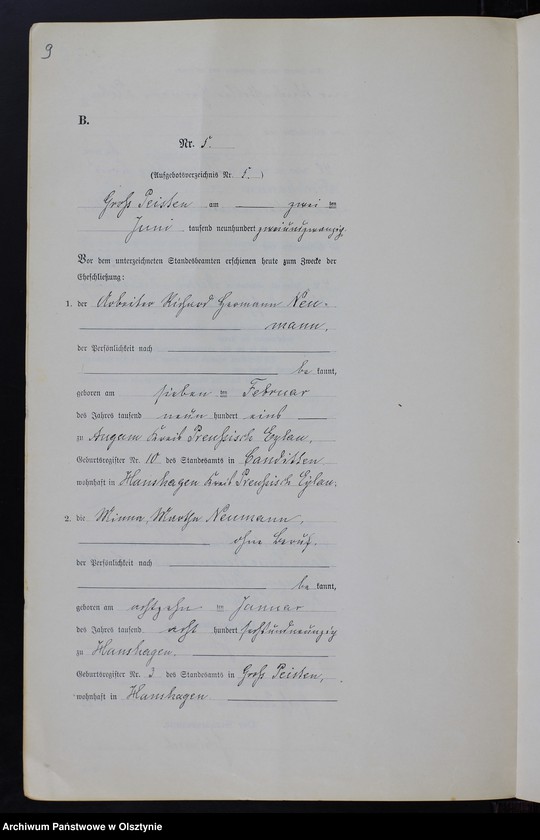 9
B.
Nr. 5.
(Aufgebotsverzeichnis Nr. 5.)
Groß Peisten am zwei ten
Juni tausend neunhundert zweiundzwanzig.
Vor dem unterzeichneten Standesbeamten erschienen heute zum Zwecke der
Eheschließung:
1. der Arbeiter Richard Hermann Neu-
mann,
der Persönlichkeit nach
be kannt,
geboren am sieben ten Februar
des Jahres tausend neun hundert eins
zu Augam Kreis Preußisch Eylau.
Geburtsregister Nr. 10 des Standesamts in Canditten
wohnhaft in Hanshagen Kreis Preußisch Eylau.
2. die Minna Martha Neumann,
ohne Beruf.
der Persönlichkeit nach
be kannt,
geboren am achtzehn ten Januar
des Jahres tausend acht hundert sechsundneunzig
zu Hanshagen.
Geburtsregister Nr. 3 des Standesamts in Groß Peisten,
wohnhaft in Hanshagen
Archiwum Państwowe w Olsztynie